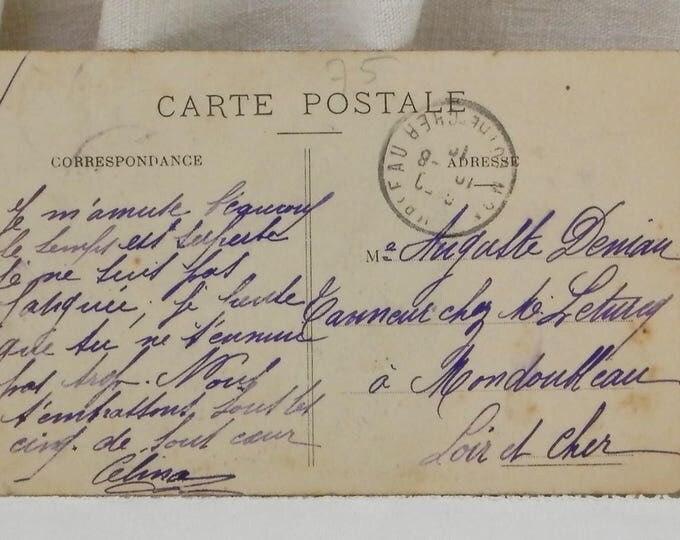 75
CARTE POSTALE
CORRESPONDANCE
ADRESSE
Je m'amuse beaucoup
le temps est superbe
je ne suis pas
fatiguée, je
que tu ne t'ennuie
pas trop. Nous
t'embrassons tous les
cinq de tout cœur
Celina
Me Auguste Deniau
Tanneur chez M. Leturcq
à Mondoubleau
Loir et Cher
LOIR-ET-CHER